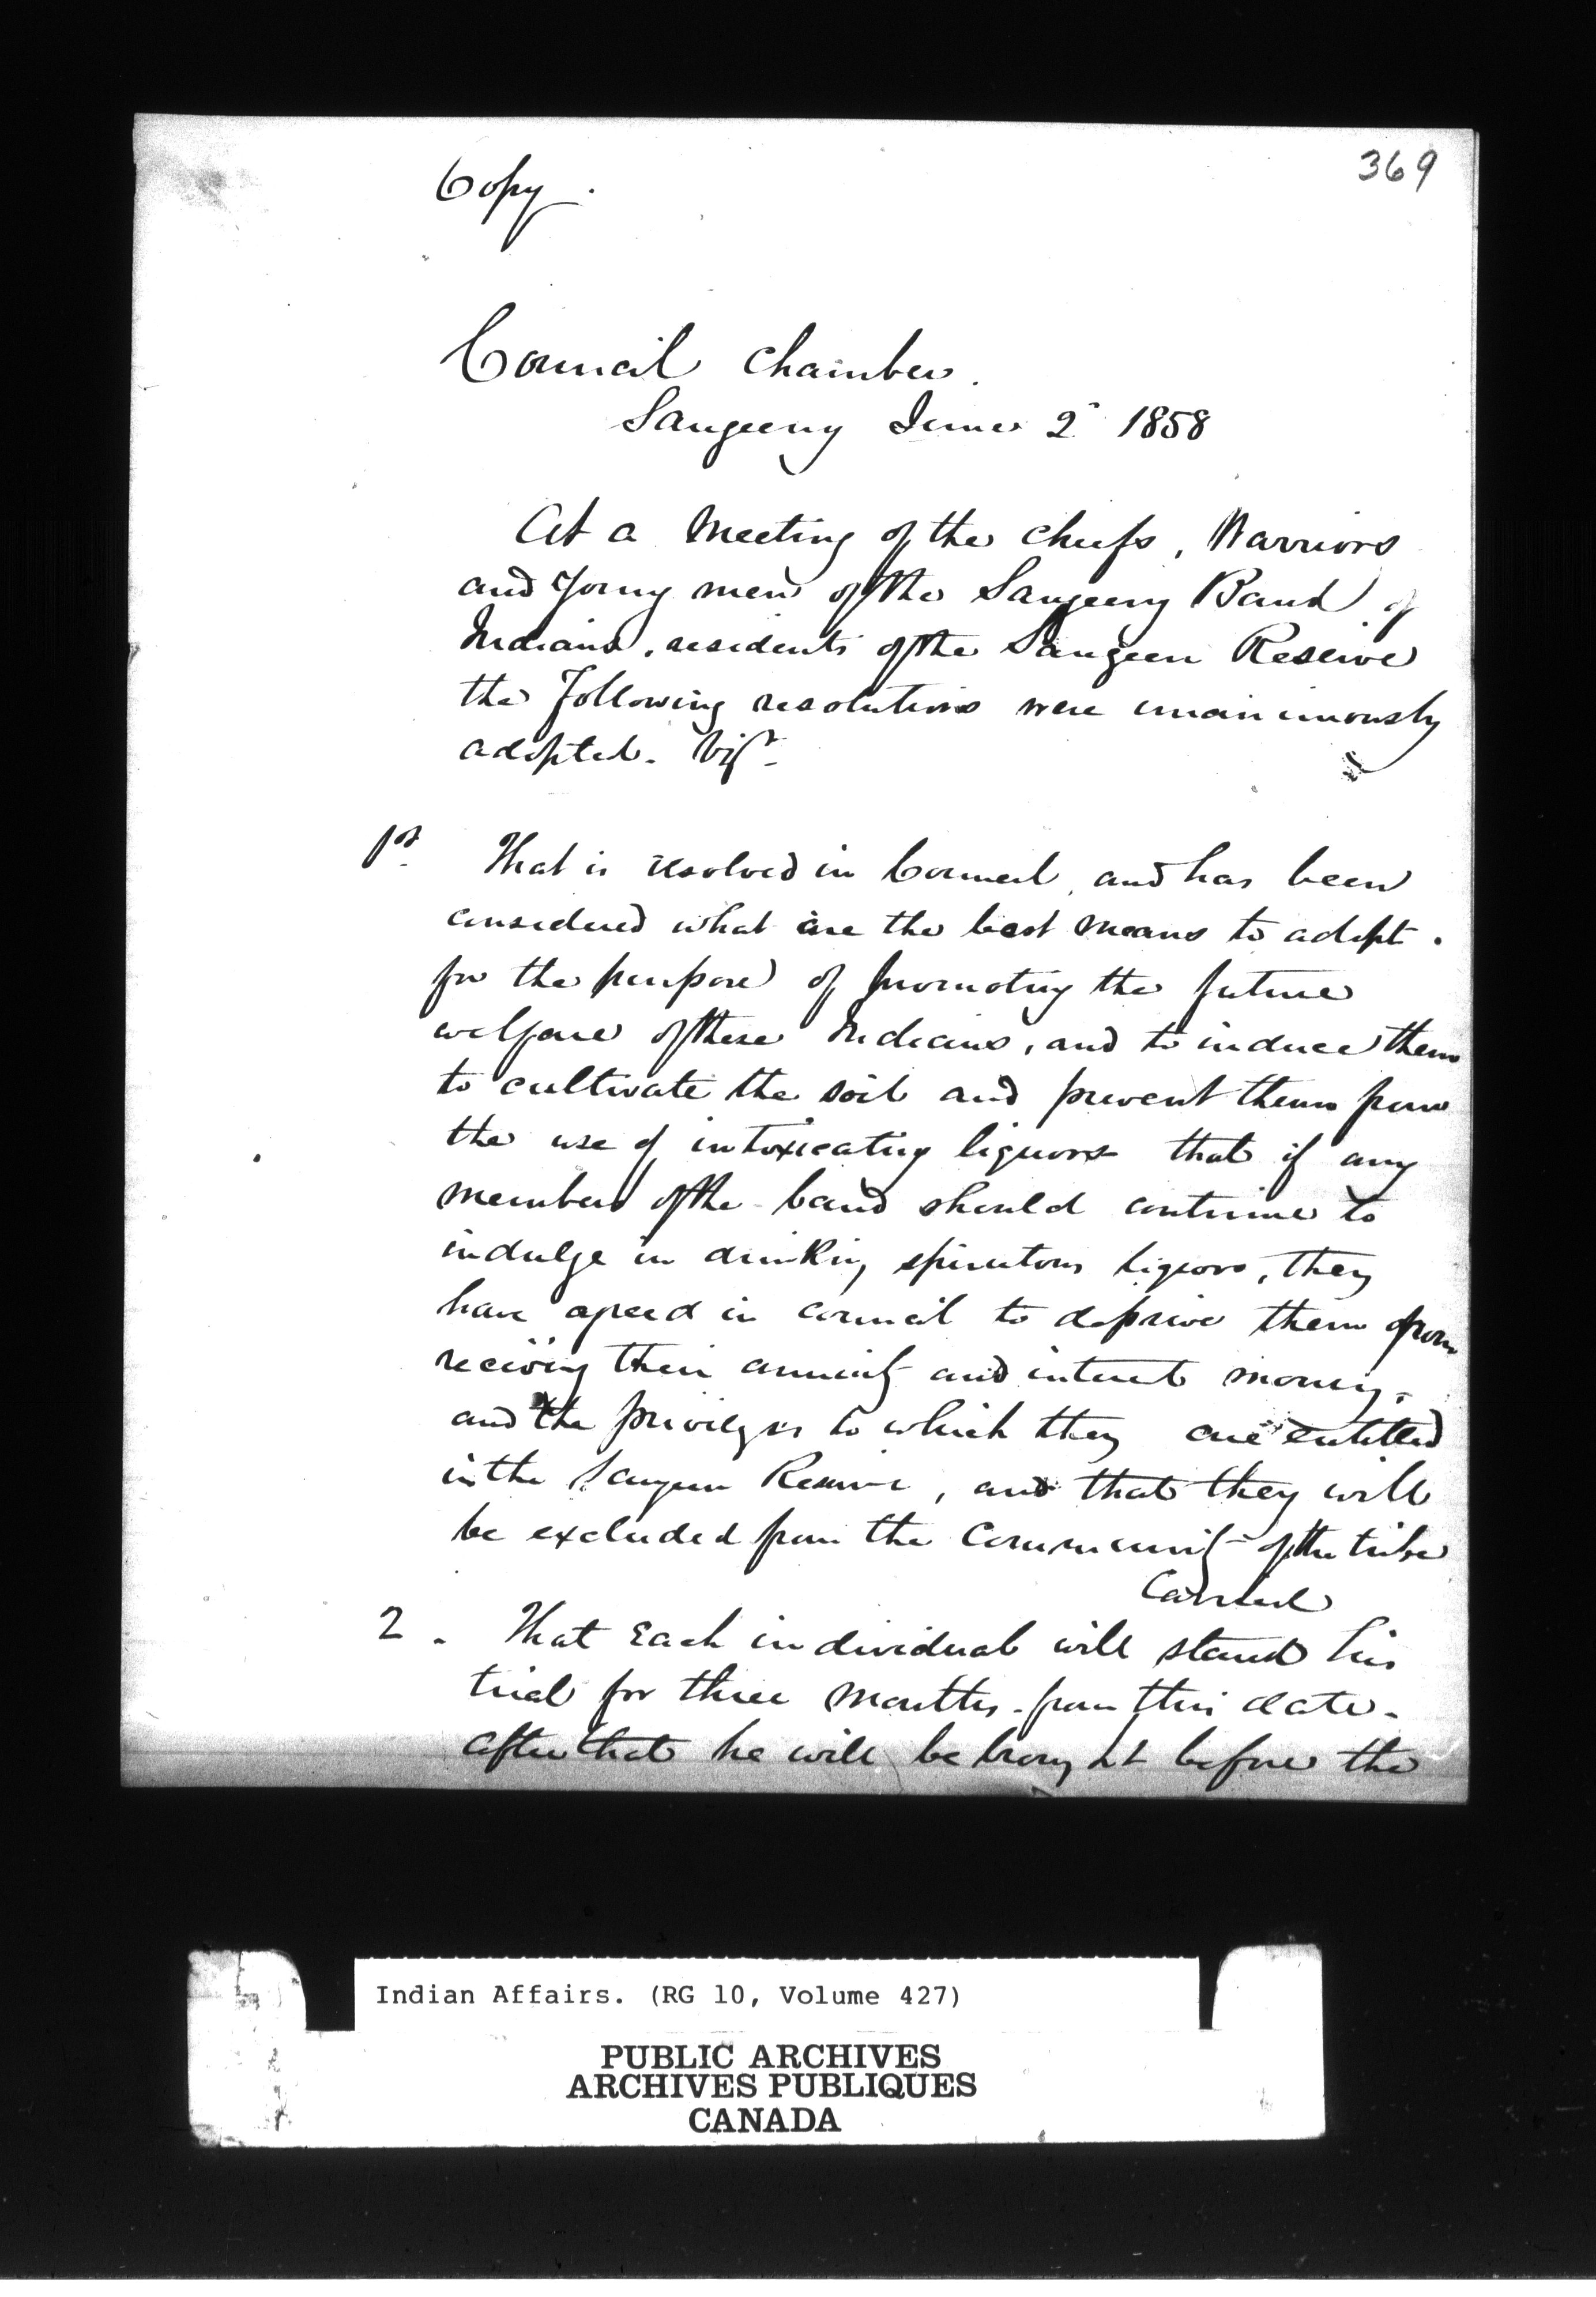 369
Copy.
Council Chamber.
Saugeeny June 2 1858
At a Meeting of the Chiefs, Warriors
and Young men of the Saugeeny Band of
Indians, residents of the Saugeen Reserve
the Following resolutions were unanimously
adopted. Viz.
1st. That is resolved in Council, and has been
considered what are the best means to adopt.
for the purpose of promoting the future
welfare of these Indians, and to induce them
to cultivate the soil and prevent them from
the use of intoxicating liquors that if any
member of the band should continue to
indulge in drinking spirutous liquors, they
have agreed in council to deprive them from
receiving their annuity and interest money.
and the privileges to which they are entitled
in the Saugeen Reserve, and that they will
be excluded from the Community of the tribe
Carried
2. That Each individual will stand his
trial for three months. from this date.
after that he will be brought before the
Indian Affairs. (RG 10, Volume 427)
PUBLIC ARCHIVES
ARCHIVES PUBLIQUES
CANADA